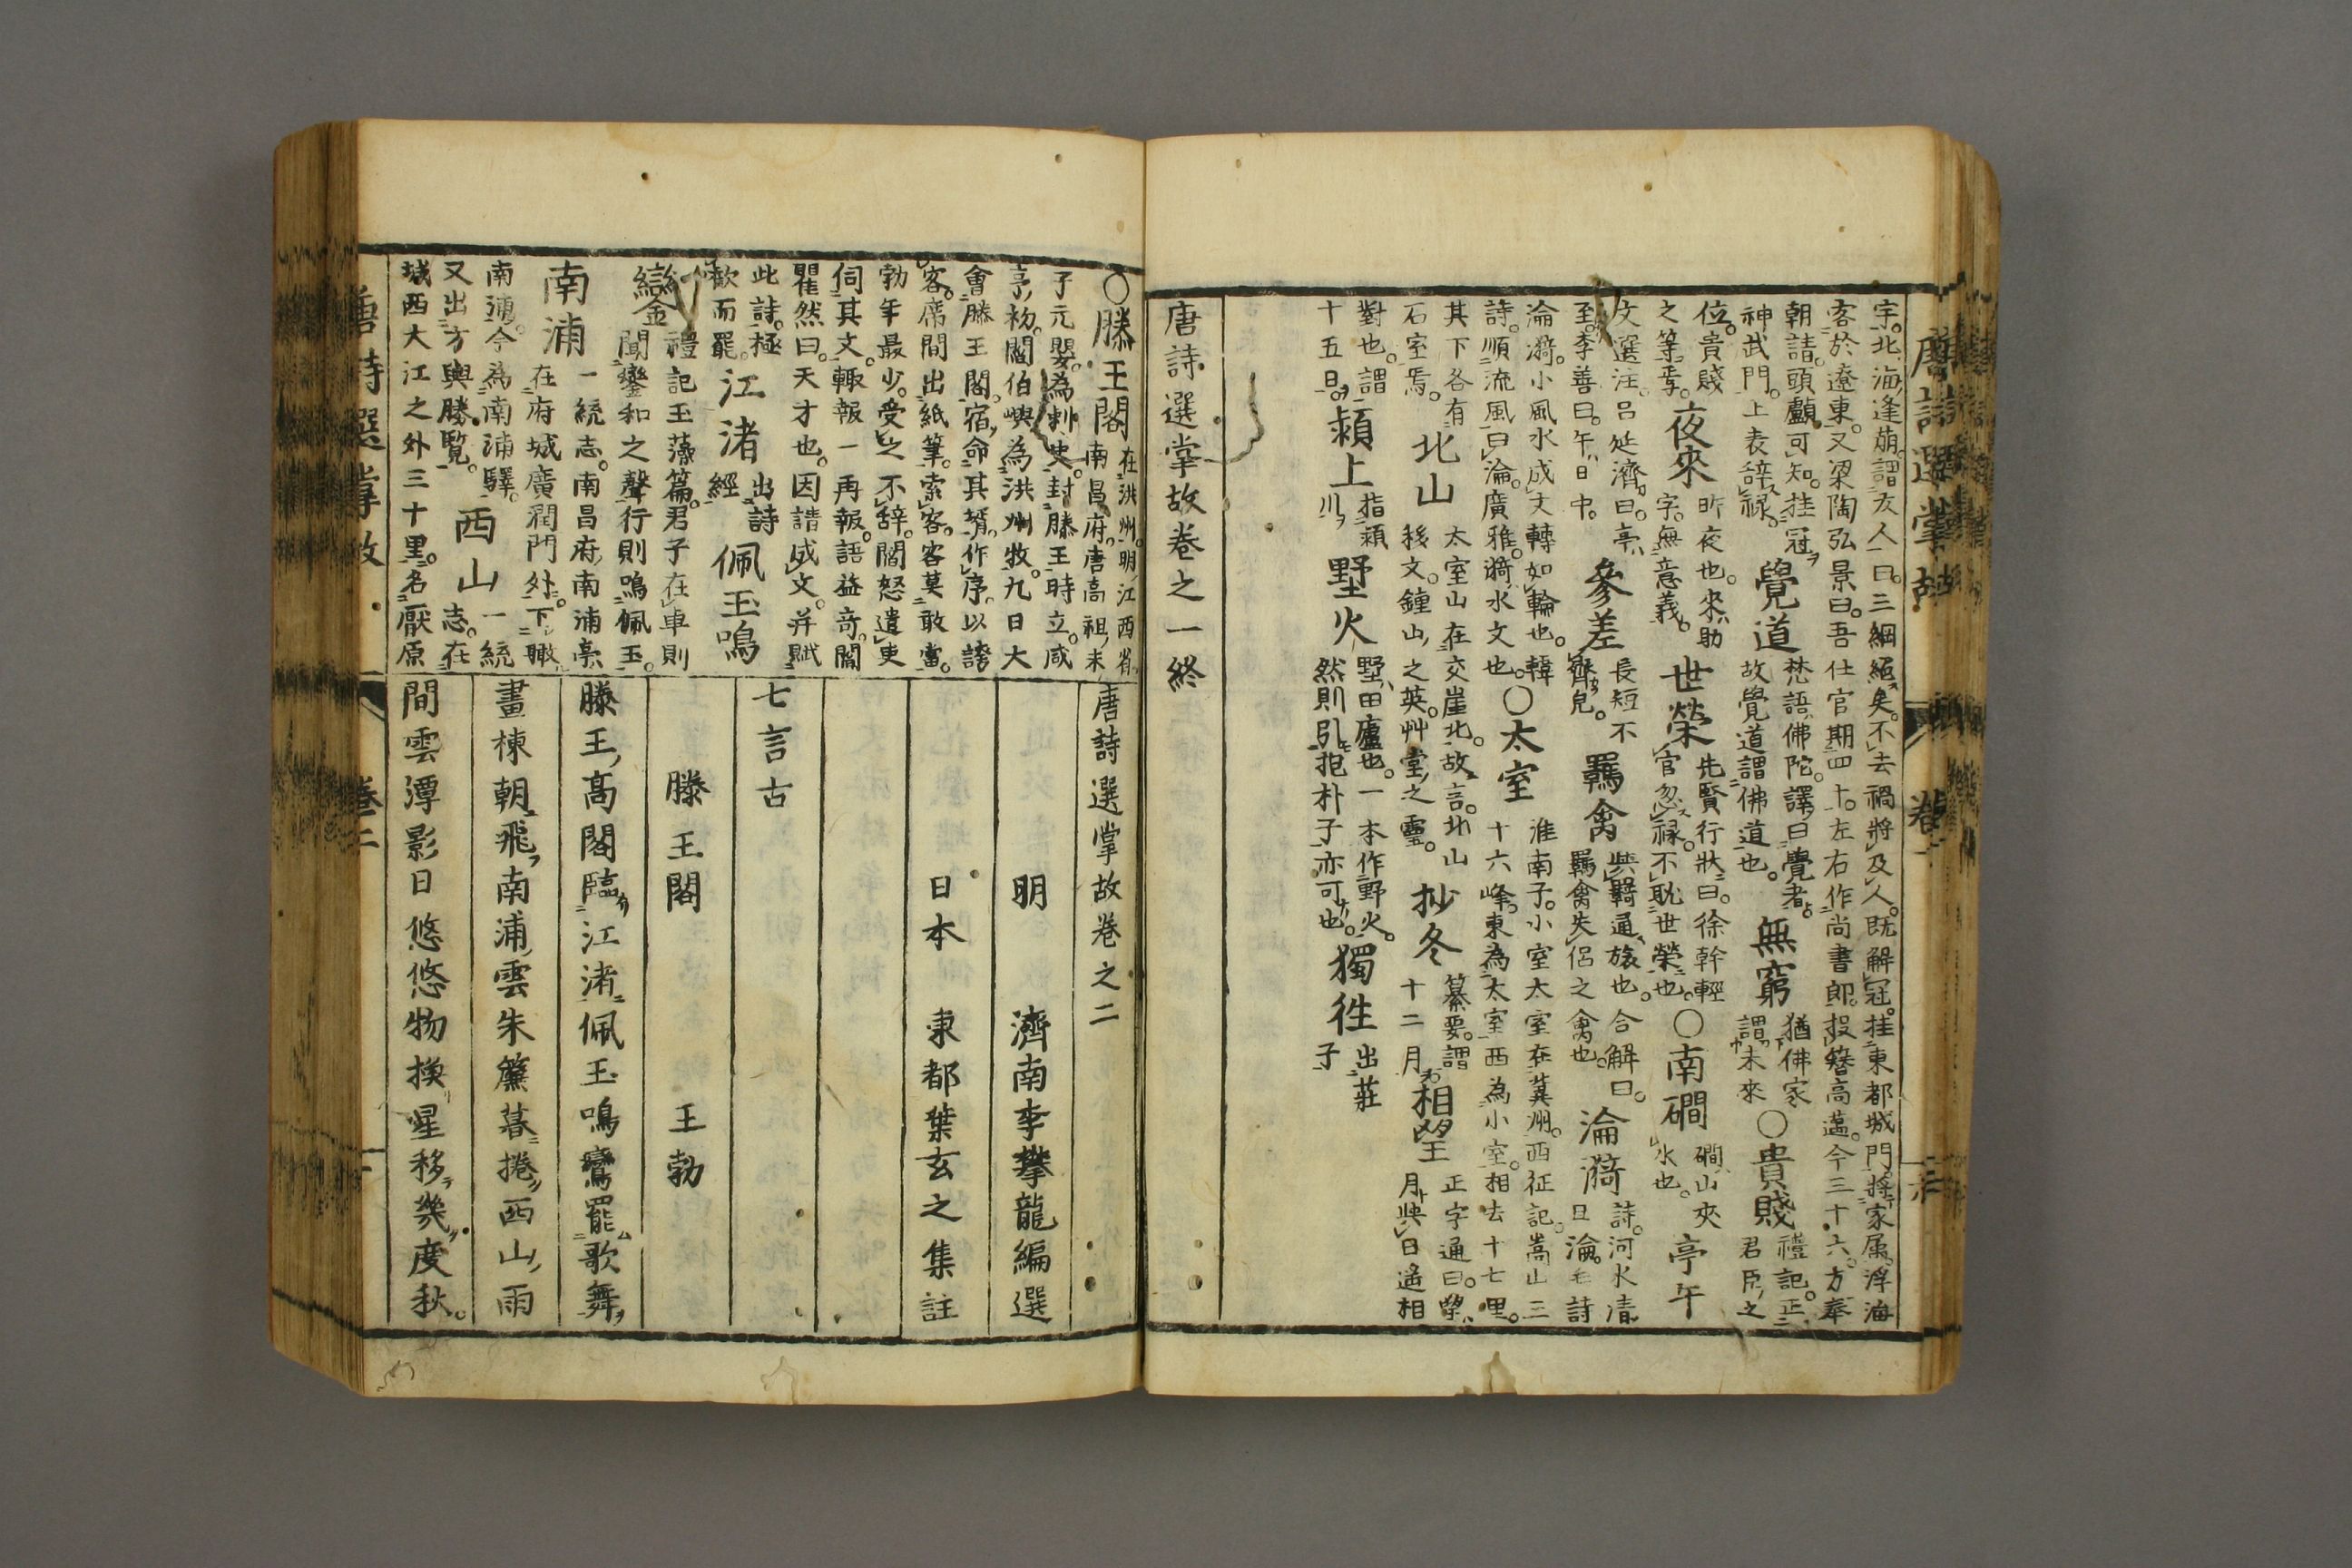 唐詩選掌故 卷一
宗北海逢萌謂友人曰三綱絕矣不去禍將及人既解冠挂東都城門將家属浮海
客於遼東又梁陶弘景曰吾仕官期四十左右作尚書郎投簪高邁今三十六方奉
朝請頭顱可知挂冠
神武門上表辭祿
覺道
梵語佛陀譯曰覺者
故覺道謂佛道也
無窮
猶佛家
謂未來
○貴賤
禮記正
君臣之
位貴賤
之等
夜來
昨夜也來助
字無意義
世榮
先賢行狀曰徐幹輕
官忽祿不耽世榮也
○南磵
磵山夾
水也
亭午
文選注呂延濟曰亭
至李善曰午日中
參差
長短不
齊皃
羈禽
與羇通旅也合解曰
羈禽失侶之禽也
淪漪
詩河水清
且淪毛詩
淪漪小風水成文轉如輪也韓
詩順流風曰淪廣雅漪水文也
○太室
淮南子小室太室在冀州西征記嵩山三
十六峰東為太室西為小室相去十七里
其下各有
石室焉
北山
太室山在交崖北故言北山
移文鍾山之英艸堂之靈
抄冬
纂要謂
十二月
相望
正字通曰望
月與日遙相
對也謂
十五日
潁上
指潁
川
墅火
墅田廬也一本作野火
然則引抱朴子亦可也
獨往
出莊
子
唐詩選掌故卷之一終
○滕王閣
在洪州明江西省
南昌府唐高祖末
子元嬰為刺史封滕王時立咸
亨初閻伯嶼為洪州牧九日大
會滕王閣宿命其壻作序以誇
客席間出紙筆索客客莫敢當
勃年最少受之不辭閻怒遣吏
伺其文輙報一再報語益竒閻
瞿然曰天才也因請成文并賦
此詩極
歡而罷
江渚
出詩
經
佩玉鳴
鑾
禮記玉藻篇君子在車則
聞鑾和之聲行則鳴佩玉
南浦
一統志南昌府南浦亭
在府城廣潤門外下瞰
南浦今為南浦驛
又出方輿勝覽
西山
一統
志在
城西大江之外三十里名厭原
唐詩選掌故卷之二
明 濟南李攀龍編選
日本 東都葉玄之集註
七言古
滕王閣 王勃
滕王高閣臨江渚佩玉鳴鸞罷歌舞
畫棟朝飛南浦雲朱簾暮捲西山雨
間雲潭影日悠悠物換星移幾度秋
唐詩選掌故 卷二